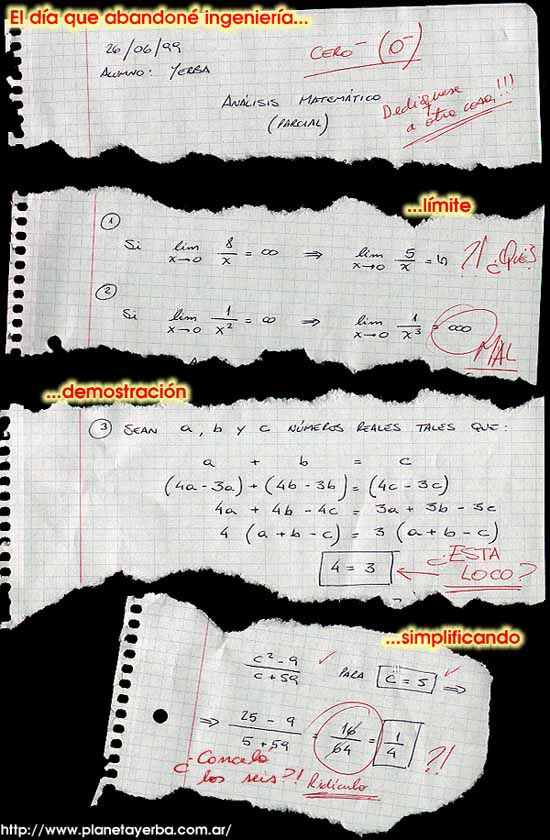 El día que abandoné ingeniería...
26/06/99
CERO⁻ (0⁻)
ALUMNO: YERBA
ANÁLISIS MATEMÁTICO
(PARCIAL)
Dedíquese
a otra cosa!!!
...límite
1
Si lim x→0 8/x = ∞ ⇒ lim x→0 5/x = ഗ ?! ¿QUÉ?
2
Si lim x→0 1/x² = ∞ ⇒ lim x→0 1/x³ = ꝏo
MAL
...demostración
3 SEAN a, b y c NÚMEROS REALES TALES QUE:
a + b = c
(4a-3a)+(4b-3b)=(4c-3c)
4a + 4b - 4c = 3a + 3b - 3c
4 (a+b-c) = 3 (a+b-c)
4 = 3 ← ¿ESTA
LOCO?
...simplificando
c²-9 / c+59 ✓ PARA c = 5 ✓ ⇒
⇒ 25-9 / 5+59 = 16/64 = 1/4 ?!
¿Cancelo
los seis?! Ridículo
http://www.planetayerba.com.ar/